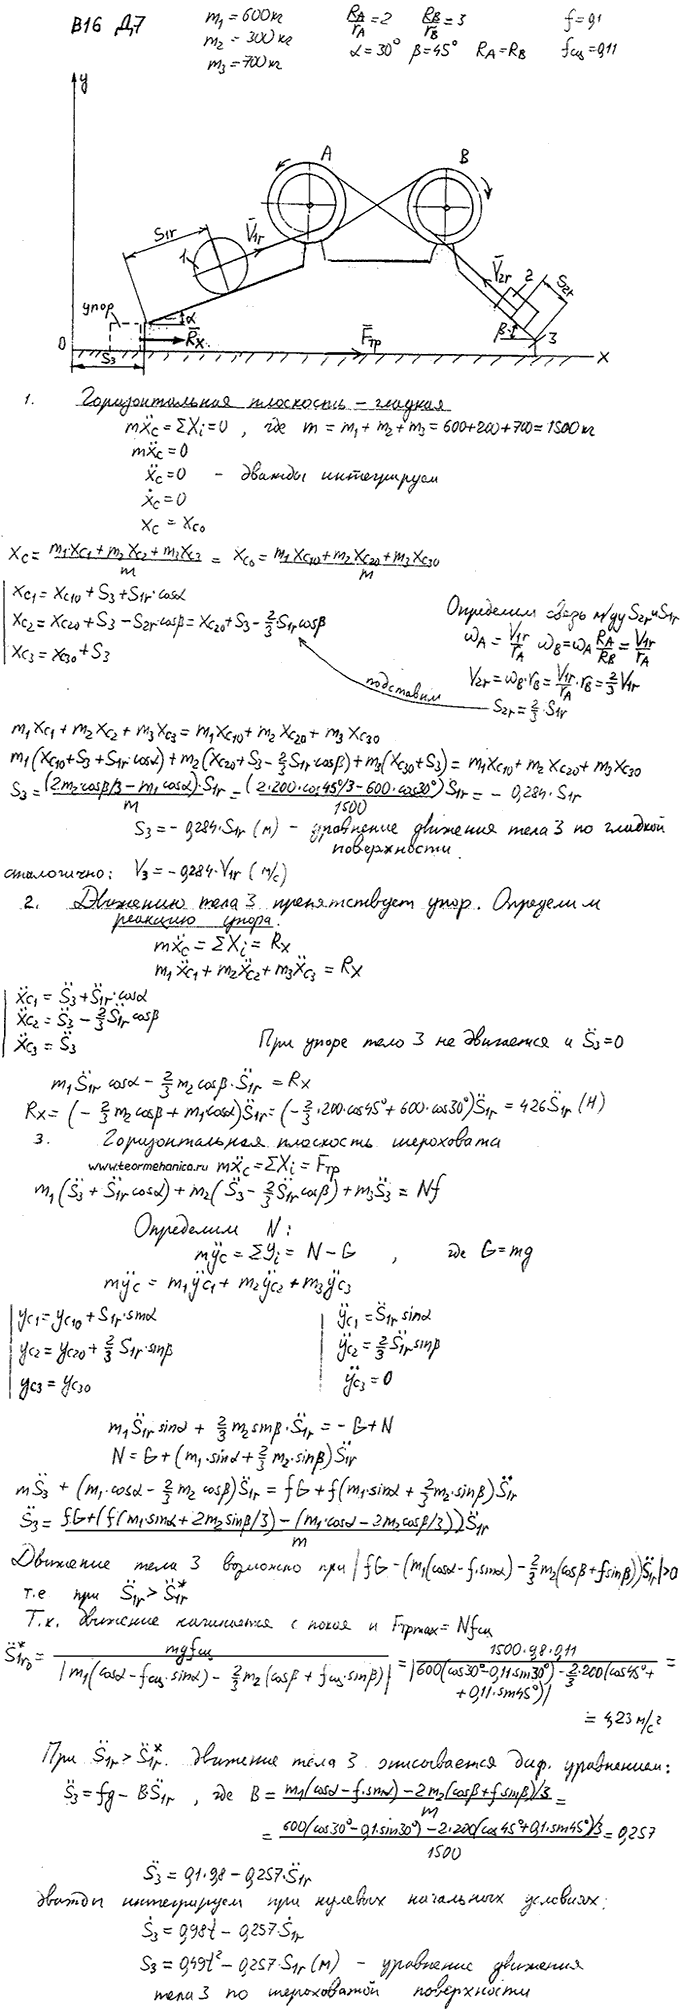 В16 Д7
m₁ = 600 кг
m₂ = 300 кг
m₃ = 700 кг
R_A/r_A = 2   R_B/r_B = 3
α = 30°  β = 45°  R_A = R_B
f = 0,1
f_сц = 0,11
y
A
B
S₁r
V̄₁r
1
V̄₂r
2
S₂r
упор
α
R̄x
β
3
0
S₃
F̄тр
x
1. Горизонтальная плоскость – гладкая
mẍc = ΣXᵢ = 0 , где m = m₁ + m₂ + m₃ = 600 + 200 + 700 = 1500 кг
mẍc = 0
ẍc = 0 – дважды интегрируем
ẋc = 0
xc = xc₀
xc = (m₁·xc₁ + m₂xc₂ + m₃xc₃)/m = xc₀ = (m₁xc₁₀ + m₂xc₂₀ + m₃xc₃₀)/m
xc₁ = xc₁₀ + S₃ + S₁r·cosα
xc₂ = xc₂₀ + S₃ – S₂r·cosβ = xc₂₀ + S₃ – 2/3·S₁r cosβ
xc₃ = xc₃₀ + S₃
Определим связь м/ду S₂r и S₁r
ω_A = V₁r/r_A  ω_B = ω_A R_A/R_B = V₁r/r_A
V₂r = ω_B·r_B = V₁r/r_A · r_B = 2/3 V₁r
S₂r = 2/3·S₁r
подставим
m₁xc₁ + m₂xc₂ + m₃xc₃ = m₁xc₁₀ + m₂xc₂₀ + m₃xc₃₀
m₁(xc₁₀ + S₃ + S₁r·cosα) + m₂(xc₂₀ + S₃ – 2/3 S₁r cosβ) + m₃(xc₃₀ + S₃) = m₁xc₁₀ + m₂xc₂₀ + m₃xc₃₀
S₃ = (2m₂cosβ/3 – m₁cosα)·S₁r/m = (2·200·cos45°/3 – 600·cos30°)/1500 S₁r = – 0,284·S₁r
S₃ = – 0,284·S₁r (м) – уравнение движения тела 3 по гладкой
поверхности.
аналогично: V₃ = – 0,284·V₁r (м/с)
2. Движению тела 3 препятствует упор. Определим
реакцию упора.
mẍc = ΣXᵢ = Rx
m₁ẍc₁ + m₂ẍc₂ + m₃ẍc₃ = Rx
ẍc₁ = S̈₃ + S̈₁r·cosα
ẍc₂ = S̈₃ – 2/3 S̈₁r cosβ
ẍc₃ = S̈₃
При упоре тело 3 не движется и S̈₃ = 0
m₁S̈₁r cosα – 2/3 m₂cosβ·S̈₁r = Rx
Rx = (– 2/3 m₂cosβ + m₁cosα)S̈₁r = (– 2/3·200·cos45° + 600·cos30°)S̈₁r = 426S̈₁r (Н)
3. Горизонтальная плоскость шероховата
www.teormehanica.ru mẍc = ΣXᵢ = Fтр
m₁(S̈₃ + S̈₁r cosα) + m₂(S̈₃ – 2/3 S̈₁r cosβ) + m₃S̈₃ = Nf
Определим N:
mÿc = ΣYᵢ = N – G , где G = mg
mÿc = m₁ÿc₁ + m₂ÿc₂ + m₃ÿc₃
yc₁ = yc₁₀ + S₁r·sinα
yc₂ = yc₂₀ + 2/3 S₁r·sinβ
yc₃ = yc₃₀
ÿc₁ = S̈₁r sinα
ÿc₂ = 2/3 S̈₁r sinβ
ÿc₃ = 0
m₁S̈₁r sinα + 2/3 m₂sinβ·S̈₁r = – G + N
N = G + (m₁·sinα + 2/3 m₂·sinβ)S̈₁r
mS̈₃ + (m₁·cosα – 2/3 m₂ cosβ)S̈₁r = fG + f(m₁sinα + 2/3 m₂·sinβ)S̈₁r
S̈₃ = (fG + (f(m₁sinα + 2m₂sinβ/3) – (m₁·cosα – 2m₂cosβ/3))S̈₁r)/m
Движение тела 3 возможно при |fG – (m₁(cosα – f·sinα) – 2/3 m₂(cosβ + f sinβ))S̈₁r| > 0
т.е при S̈₁r > S̈₁r*
Т.к. движение начинается с покоя и Fтрmax = Nfсц
S̈₁r₀* = mgfсц / |m₁(cosα – fсц·sinα) – 2/3 m₂(cosβ + fсц·sinβ)| = 1500·9,8·0,11 / |600(cos30° – 0,11·sin30°) – 2/3·200(cos45° +
+ 0,11·sin45°)| =
= 4,23 м/с²
При S̈₁r > S̈₁r* движение тела 3 описывается диф. уравнением:
S̈₃ = fg – B·S̈₁r , где B = (m₁(cosα – f·sinα) – 2m₂(cosβ + f·sinβ)/3)/m =
= (600(cos30° – 0,1·sin30°) – 2·200(cos45° + 0,1·sin45°)/3)/1500 = 0,257
S̈₃ = 0,1·9,8 – 0,257·S̈₁r
дважды интегрируем при нулевых начальных условиях:
Ṡ₃ = 0,98t – 0,257·Ṡ₁r
S₃ = 0,49t² – 0,257·S₁r (м) – уравнение движения
тела 3 по шероховатой поверхности